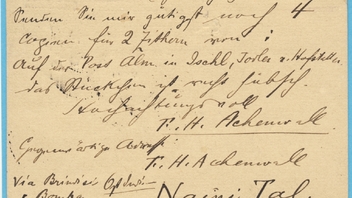 Senden Sie mir gütigst noch 4
copien für 2 Zithern von:
Auf der Post Alm in Ischl, Jodler v. Hofstetter
das Stückchen ist recht hübsch.
Hochachtungsvoll
F. H. Achenwall
Gegenwärtige Adresse
F. H. Achenwall
Via Brindisi
Naini Tal